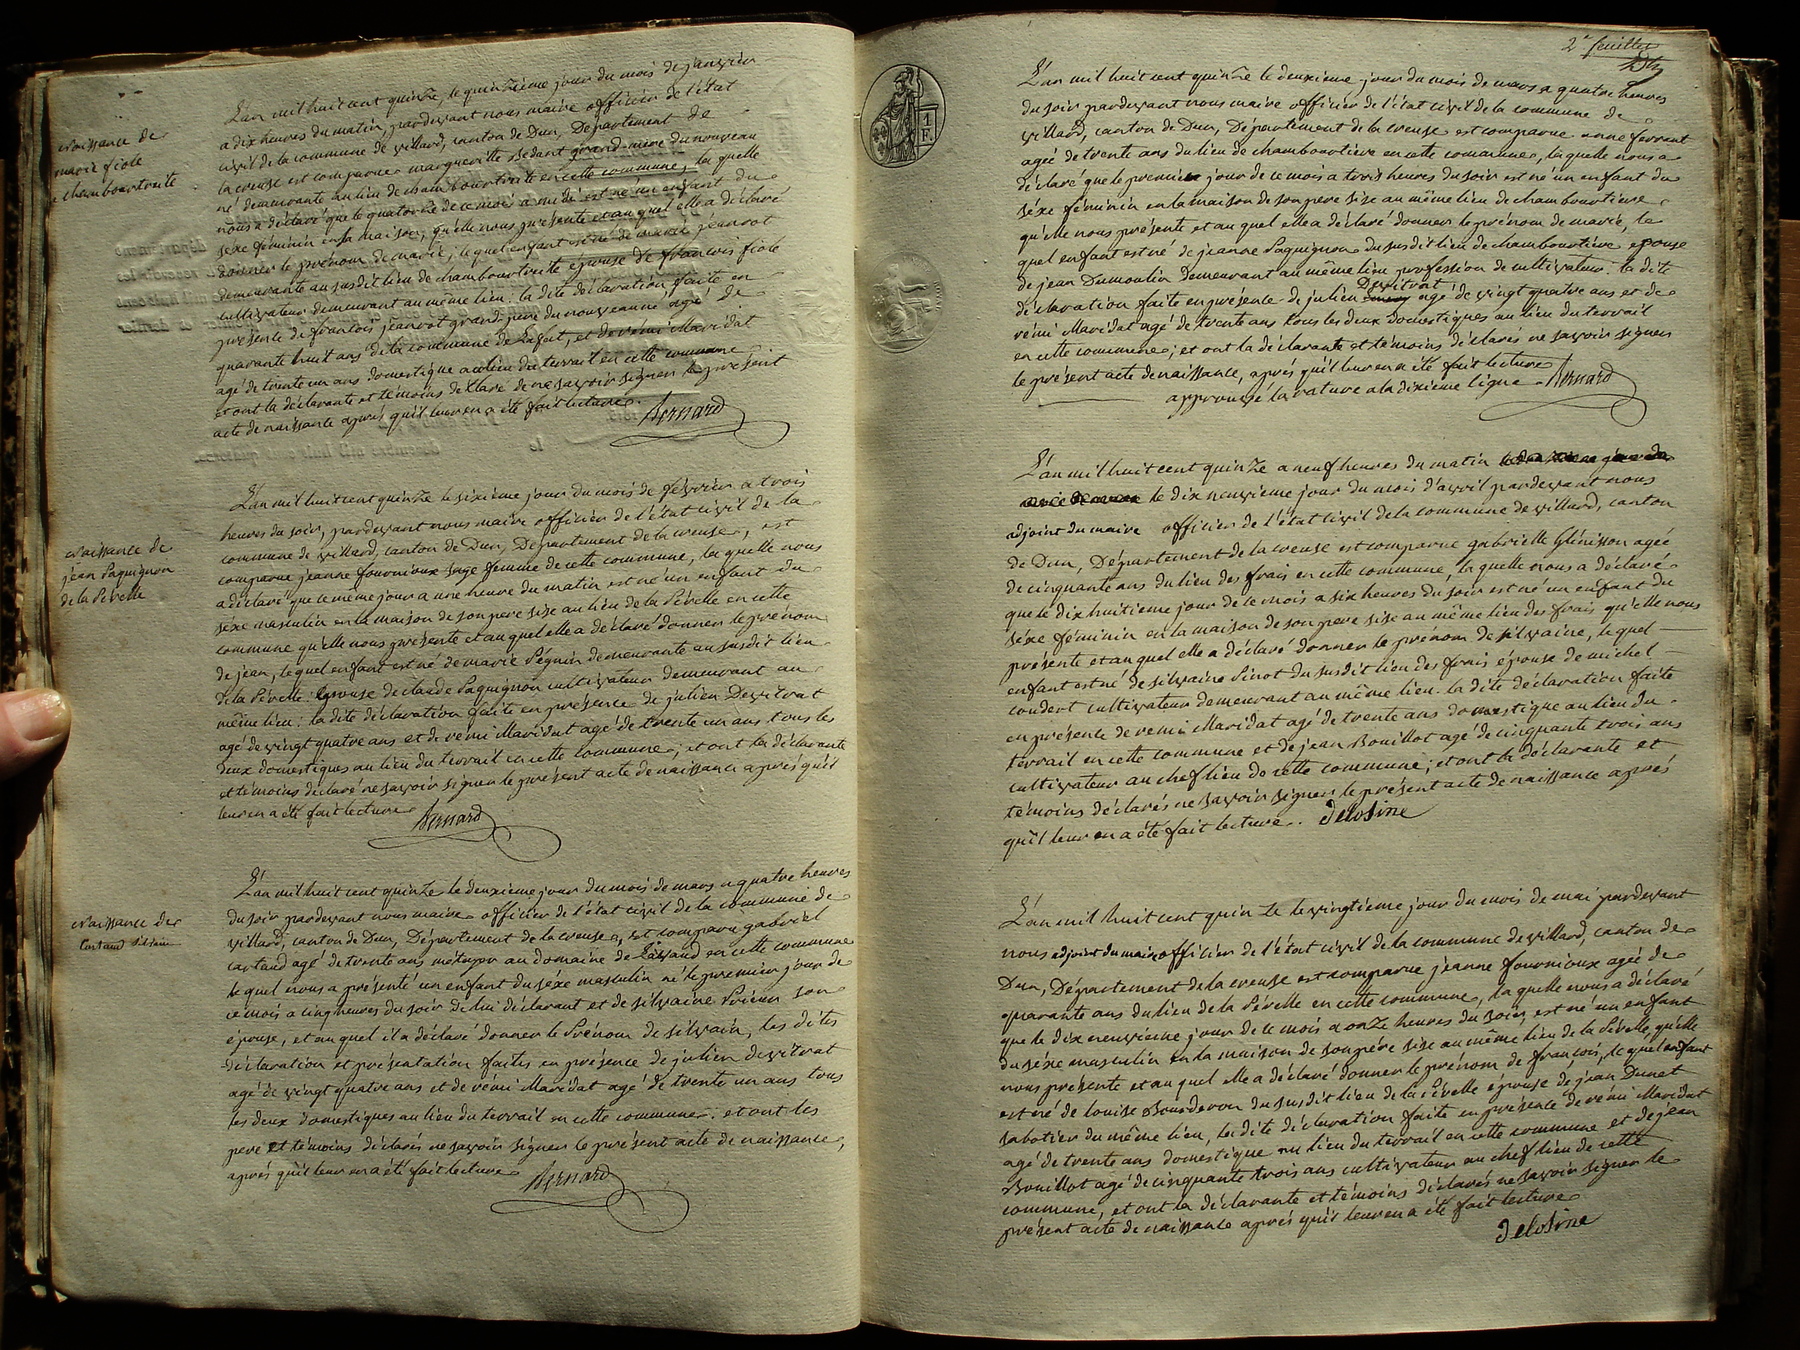 Naissance de
marie fiole
chambourtraite
L'an mil huit cent quinze, le quinzième jour du mois de janvier
a dix heures du matin, pardevant nous maire officier de l'état
civil de la commune de villard, canton de Dun, Département de
la creuse est comparue marguerite Bedant grand-mère du nouveau
né demeurante au lieu de chambourtraite en cette commune, la quelle
nous a déclaré que le quatorze de ce mois a midi est né un enfant du
séxe féminin en sa maison, qu'elle nous présente et au quel elle a déclaré
donner le prénom de marie, lequel enfant est né de marie jeanrot
demeurante au susdit lieu de chambourtraite épouse de francois fiole
cultivateur demeurant au même lieu. la dite déclaration faite en
présence de francois jeanrot grand père du nouveau né, agé de
quarante huit ans de la commune de Lafat, et de rémi Maridat
agé de trente un ans domestique au lieu du terrail en cette commune
et ont la déclarante et témoins déclaré ne savoir signer le présent
acte de naissance après qu'il leur en a été fait lecture. Bernard
Naissance de
jean Paquignon
de la Pérelle
L'an mil huit cent quinze le sixième jour du mois de février a trois
heures du soir, pardevant nous maire officier de l'état civil de la
commune de villard, canton de Dun, Département de la creuse, est
comparue jeanne fournioux sage femme de cette commune, la quelle nous
a déclaré que ce même jour a une heure du matin est né un enfant du
séxe masculin en la maison de son pere sise au lieu de la Pérelle en cette
commune qu'elle nous présente et au quel elle a déclaré donner le prénom
de jean, le quel enfant est né de marie Péguin demeurante au susdit lieu
de la Pérelle épouse de claude Paquignon cultivateur demeurant au
même lieu: la dite déclaration faite en présence de julien Devitrat
agé de vingt quatre ans et de rémi Maridat agé de trente un ans tous les
deux domestiques au lieu du terrail en cette commune; et ont la déclarante
et témoins déclaré ne savoir signer le présent acte de naissance après qu'il
leur en a été fait lecture Bernard
Naissance de
Cartaud silvain
L'an mil huit cent quinze le deuxieme jour du mois de mars a quatre heures
du soir pardevant nous maire officier de l'état civil de la commune de
villard, canton de Dun, Département de la creuse, est comparu gabriel
cartaud agé de trente ans métayer au domaine de en cette commune
le quel nous a présenté un enfant du séxe masculin né le premier jour de
ce mois a cinq heures du soir de lui déclarant et de silvaine Prieur son
épouse, et au quel il a déclaré donner le Prénom de silvain, les dites
déclaration et présentation faites en présence de julien devitrat
agé de vingt quatre ans et de rémi Maridat agé de trente un ans tous
les deux domestiques au lieu du terrail en cette commune; et ont les
pere et témoins déclarés ne savoir signer le présent acte de naissance,
après qu'il leur en a été fait lecture Bernard
2e feuillet
1 F.
L'an mil huit cent quinze le deuxieme jour du mois de mars a quatre heures
du soir pardevant nous maire officier de l'état civil de la commune de
villard, canton de Dun, Département de la creuse est comparue anne ferrant
agée de trente ans du lieu de chambourtière en cette commune, la quelle nous a
déclaré que le premier jour de ce mois a trois heures du soir est né un enfant du
séxe féminin en la maison de son pere sise au même lieu de chambourtière
qu'elle nous présente et au quel elle a déclaré donner le prénom de marie, le
quel enfant est né de jeanne Paquignon du susdit lieu de chambourtière epouse
de jean Dumoulin demeurant au même lieu profession de cultivateur: la dite
déclaration faite en présence de julien Devitrat agé de vingt quatre ans et de
rémi Maridat agé de trente ans tous les deux domestiques au lieu du terrail
en cette commune; et ont la déclarante et témoins déclarés ne savoir signer
le présent acte de naissance, après qu'il leur en a été fait lecture
approuvé la rature a la dixieme ligne Bernard
L'an mil huit cent quinze a neuf heures du matin
le dix neuvieme jour du mois d'avril pardevant nous
adjoint du maire officier de l'état civil de la commune de villard, canton
de Dun, Département de la creuse est comparue gabrielle Glénisson agée
de cinquante ans du lieu des frais en cette commune, la quelle nous a déclaré
que le dix huitieme jour de ce mois a six heures du soir est né un enfant du
séxe féminin en la maison de son pere sise au même lieu des frais qu'elle nous
présente et au quel elle a déclaré donner le prénom de silvaine, le quel
enfant est né de silvaine Pinot du susdit lieu des frais épouse de michel
coudert cultivateur demeurant au même lieu. la dite déclaration faite
en présence de remi Maridat agé de trente ans domestique au lieu du
terrail en cette commune et de jean Bouillot agé de cinquante trois ans
cultivateur au chef lieu de cette commune; et ont la déclarante et
témoins déclarés ne savoir signer le présent acte de naissance après
qu'il leur en a été fait lecture.. Delosine
L'an mil huit cent quinze le vingtieme jour du mois de mai pardevant
nous adjoint du maire officier de l'état civil de la commune de villard, canton de
Dun, Département de la creuse est comparue jeanne fournioux agée de
quarante ans du lieu de la Pérelle en cette commune, la quelle nous a déclaré
que le dix neuvieme jour de ce mois a onze heures du soir, est né un enfant
du séxe masculin en la maison de son pére sise au même lieu de la Pérelle, qu'elle
nous présente et au quel elle a déclaré donner le prénom de francois, le quel enfant
est né de louise Bourderon du susdit lieu de la Pérelle épouse de jean Dunet
sabotier du même lieu, la dite déclaration faite en présence de rémi Maridat
agé de trente ans domestique au lieu du terrail en cette commune et de jean
Bouillot agé de cinquante trois ans cultivateur au chef lieu de cette
commune, et ont la déclarante et témoins déclarés ne savoir signer le
présent acte de naissance après qu'il leur en a été fait lecture
Delosine